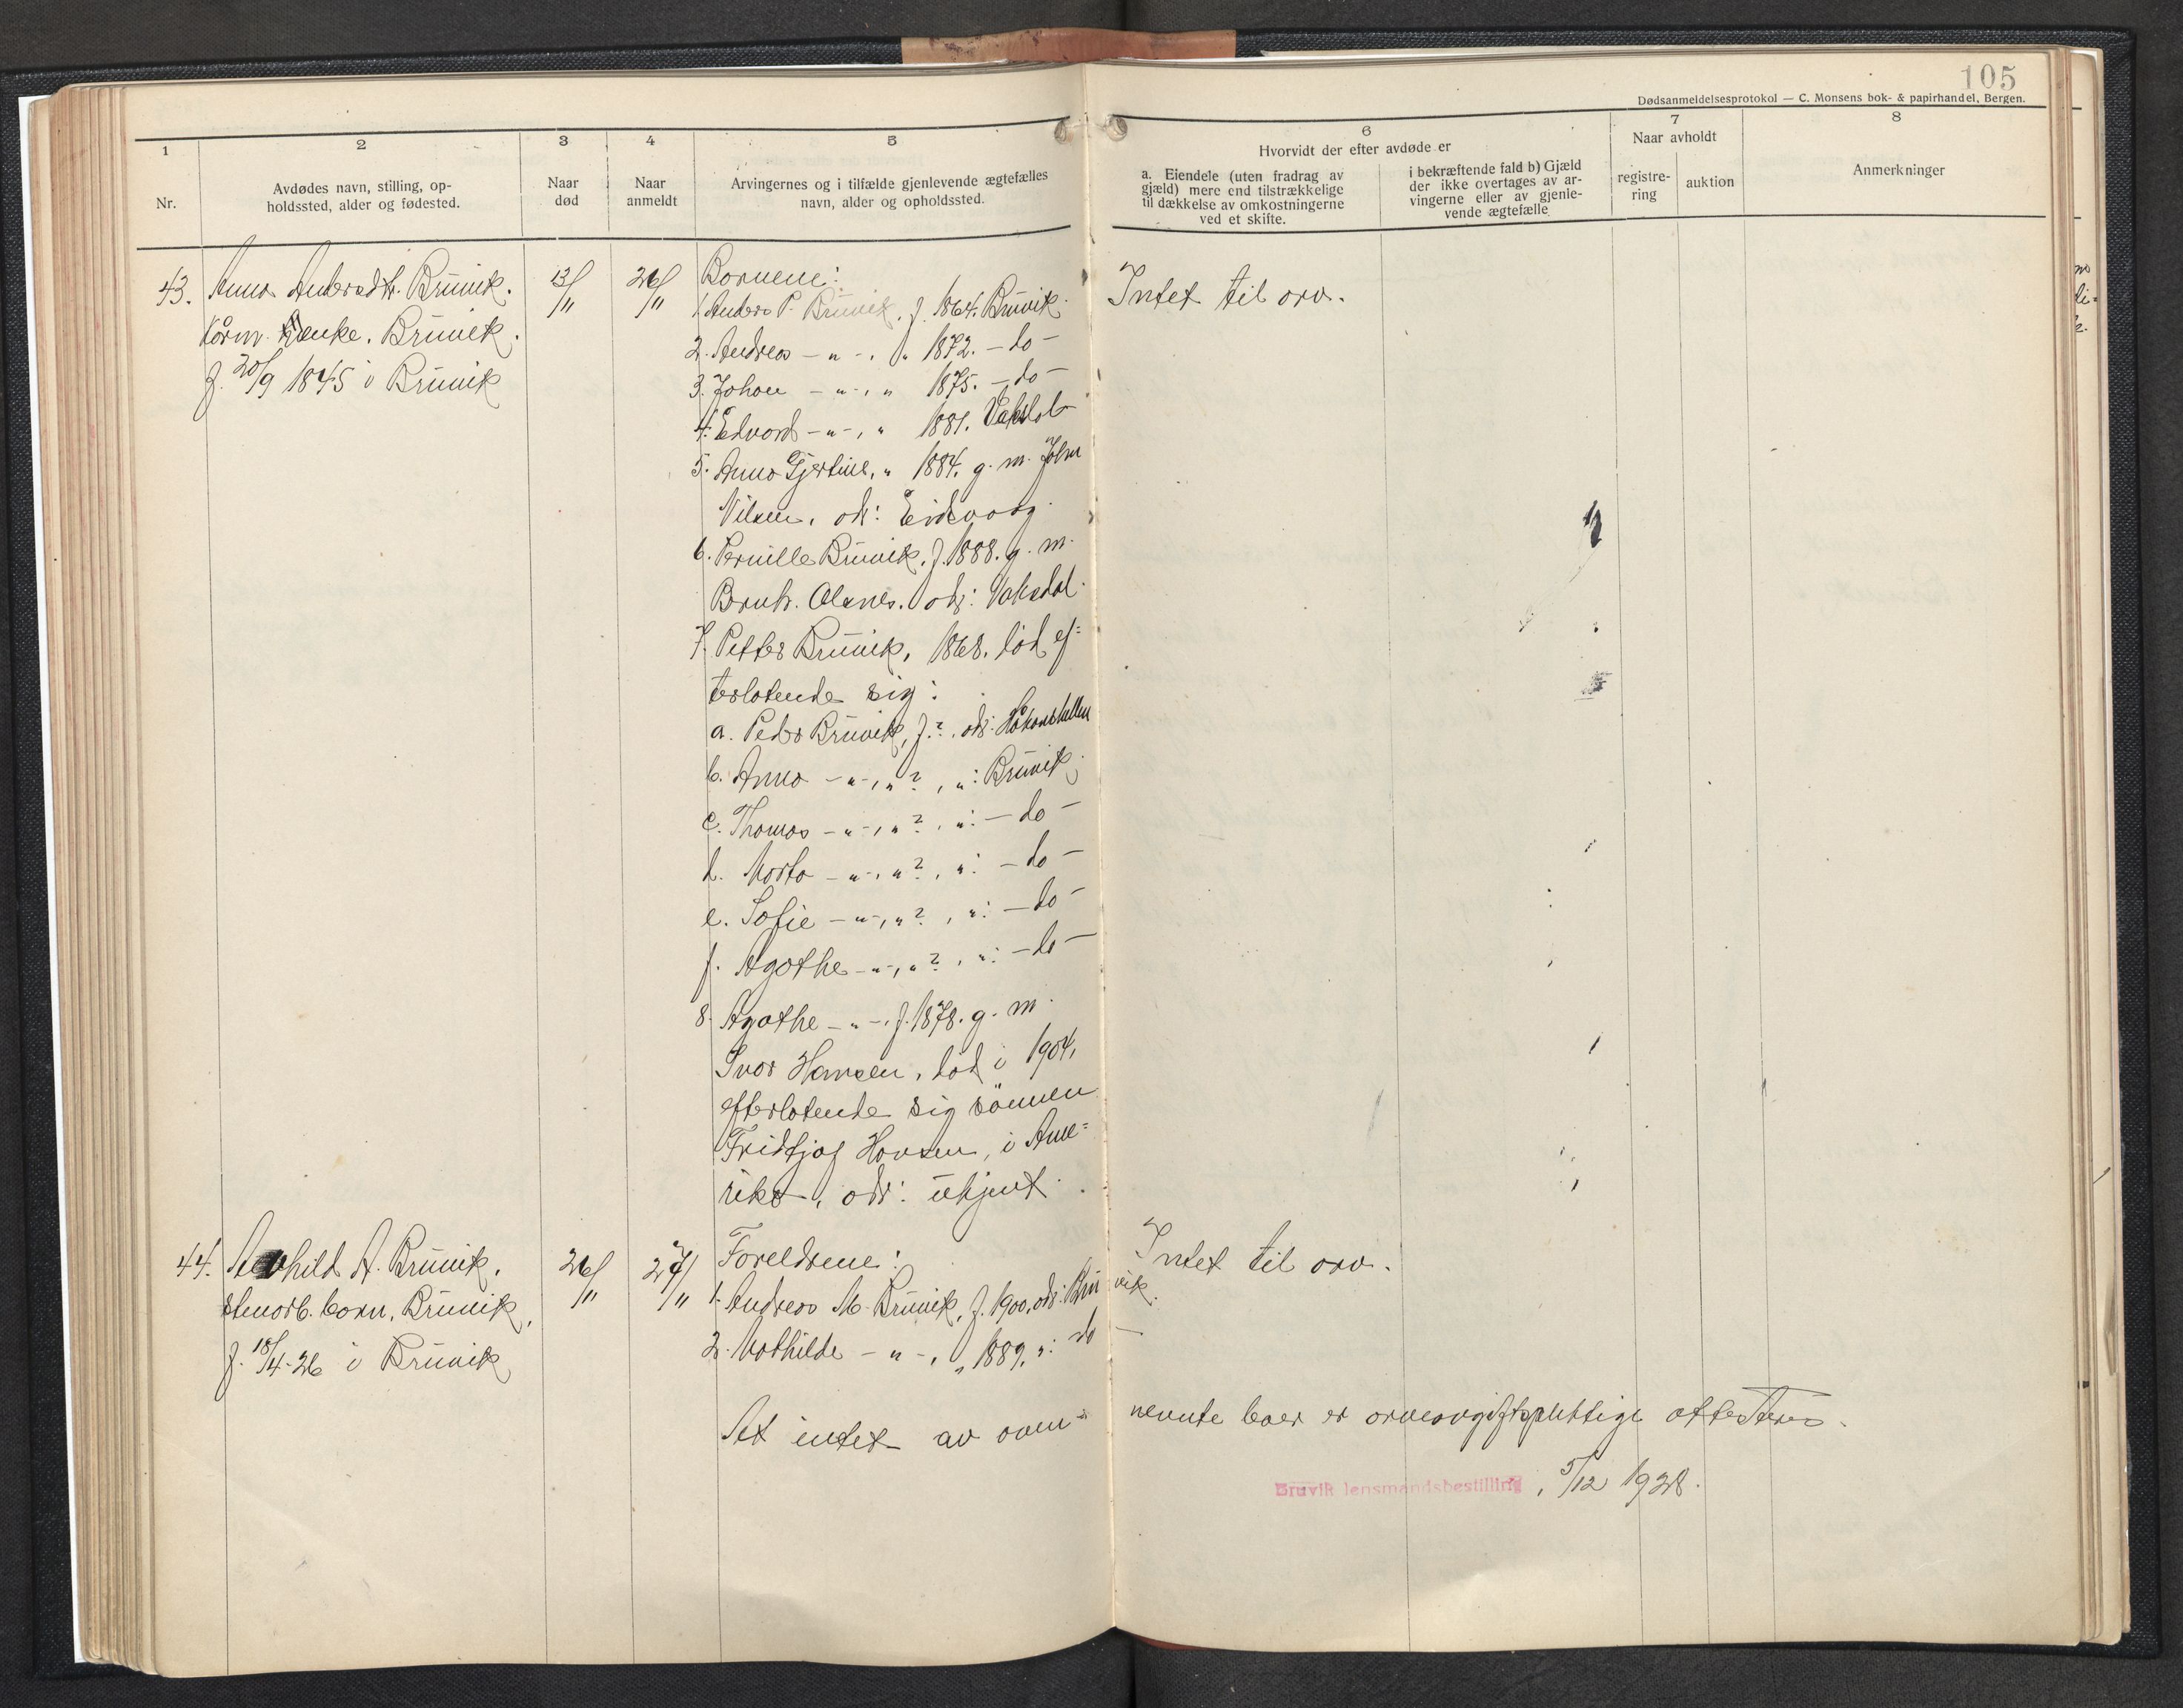 105
Dødsanmeldelsesprotokol — C. Monsens bok- & papirhandel, Bergen.
1
Nr.
2
Avdødes navn, stilling, op-
holdssted, alder og fødested.
3
Naar
død
4
Naar
anmeldt
5
Arvingernes og i tilfælde gjenlevende ægtefælles
navn, alder og opholdssted.
6
Hvorvidt der efter avdøde er
a. Eiendele (uten fradrag av
gjæld) mere end tilstrækkelige
til dækkelse av omkostningerne
ved et skifte.
i bekræftende fald b) Gjæld
der ikke overtages av ar-
vingerne eller av gjenle-
vende ægtefælle
7
Naar avholdt
registre-
ring
auktion
8
Anmerkninger
43.
Anna Andersdtr. Bruvik.
Kårm. Enke. Bruvik.
f. 20/9 1845 i Bruvik
13/11
26/11
Bornene:
1. Anders P. Bruvik. f. 1864. Bruvik.
2. Andreas - " - . " 1872. - do -
3. Johan - " - , " 1875. - do -
4. Edvard - " - , " 1881. Vaksdal
5. Anna Gjertine, " 1884. g. m. John
Nilsen, ods: Eidsvaag.
6. Pernille Bruvik. f. 1888. g. m.
Bernh. Olsnes. ods: Vaksdal.
7. Petter Bruvik, 1868. död ef=
terlatende sig:
a. Peder Bruvik, f. ?, ods: Håkonshellen
b. Anna - " - , " ? , " : Bruvik.
c. Thomas - " - , " ? , " : - do -
d. Marta - " - , " ? , " : - do -
e. Sofie - " - , " ? , " : - do -
f. Agathe - " - , " ? , " : - do -
8. Agathe - " - . f. 1878. g. m.
Ivar Hansen, död i 1904,
efterlatende sig sönnen
Fridtjof Hansen, i Ame=
rika, ods: ukjent.
Intet til arv.
44.
hild A. Bruvik.
Smorb. barn, Bruvik,
f. 18/4-26 i Bruvik
26/11
27/11
Foreldrene:
1. Andreas M. Bruvik, f. 1900, ods: Bruvik.
2. Mathilde - " - , " 1889, " : do -
Intet til arv.
At intet av oven= nevnte boer er arveavgiftspliktige attesteres.
Bruvik lensmandsbestilling, 5/12 1928.